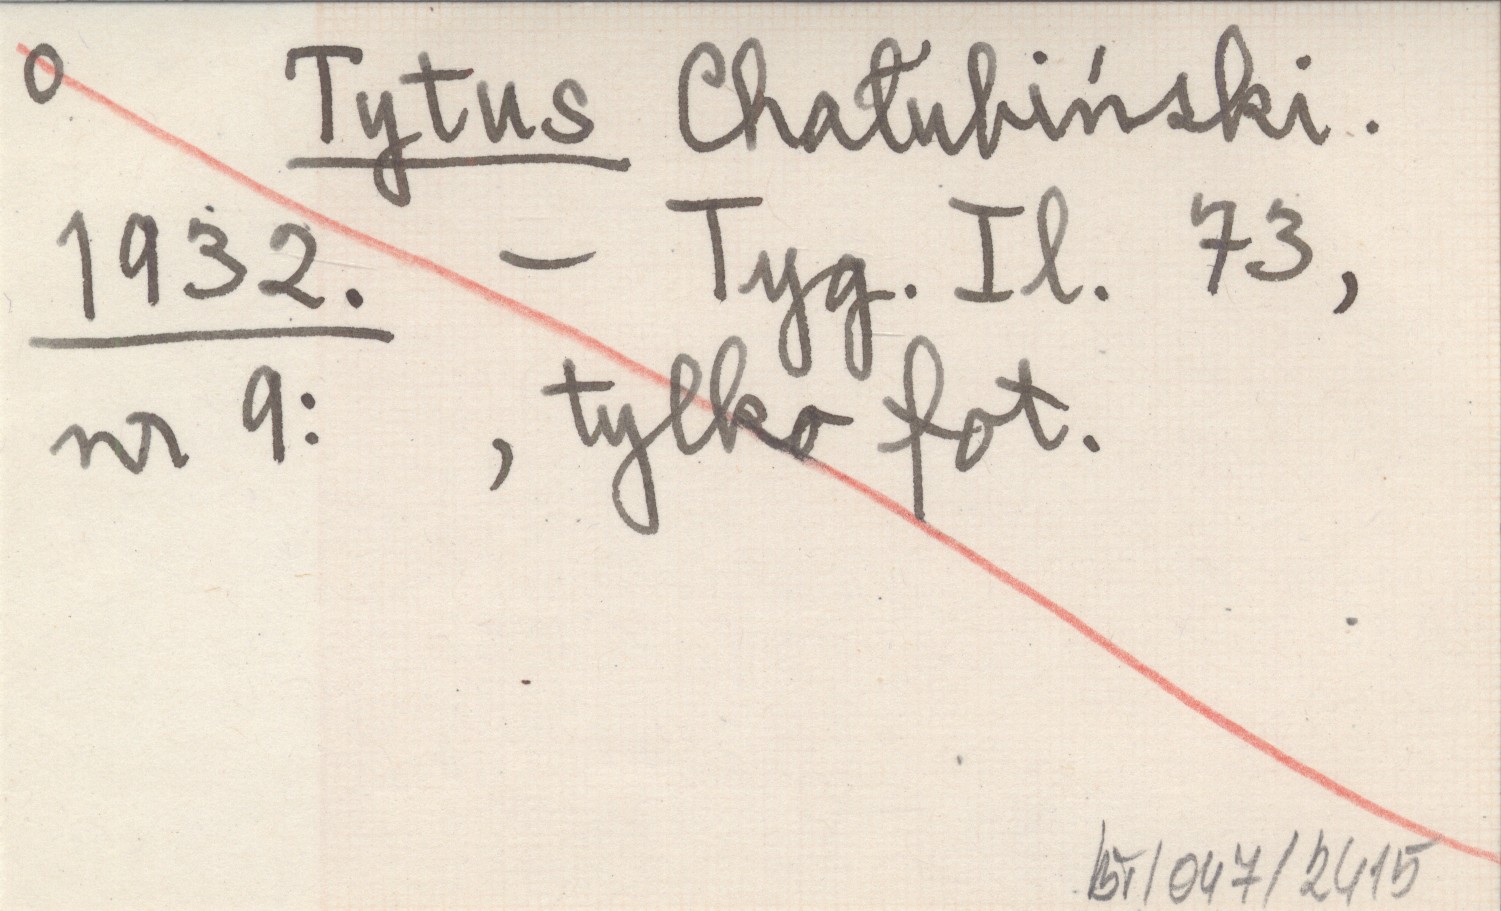 0 Tytus Chałubiński.
1932. – Tyg. Il. 73,
nr 9: , tylko fot.
/047/2415